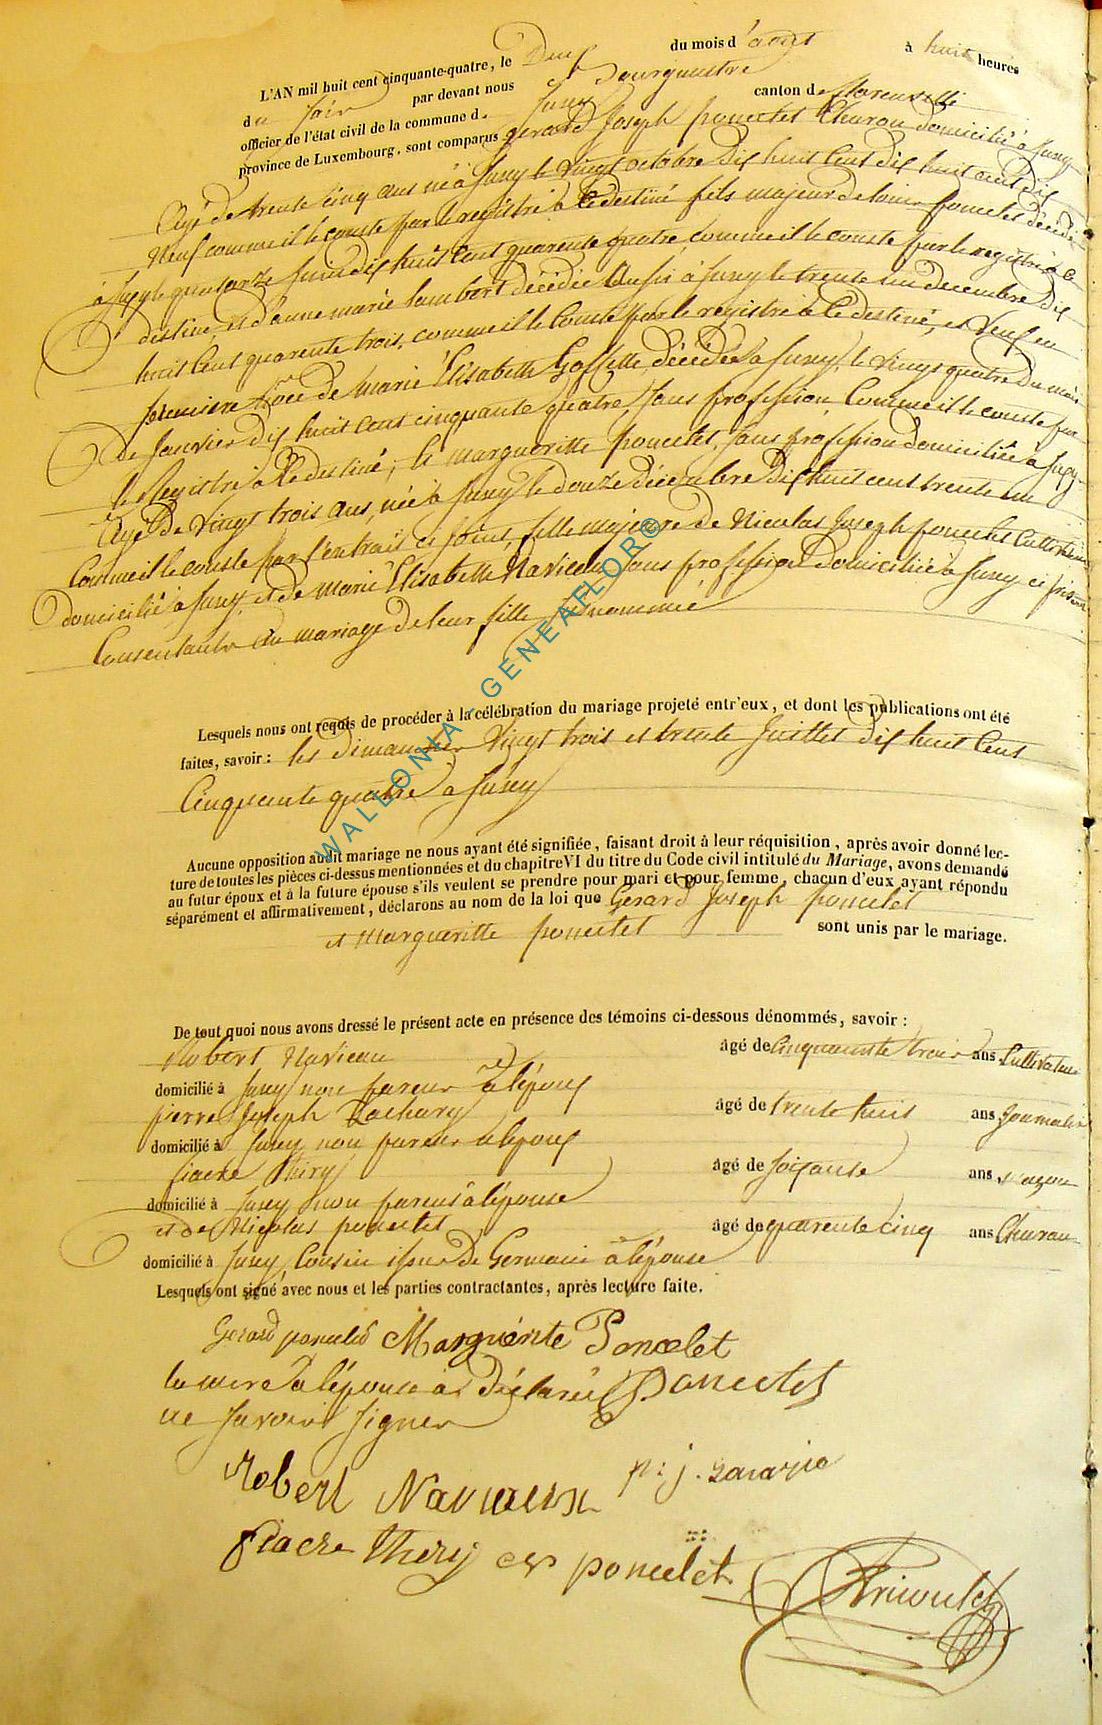 L'AN mil huit cent cinquante-quatre, le Deux du mois d'août à huit heures
du soir par devant nous Bourgmestre
officier de l'état civil de la commune de Jusey canton de florenville
province de Luxembourg, sont comparus Gerard Joseph poncelet Charon domicilié à Jusey
agé de trente cinq ans né à Jusey le vingt octobre dix huit cent dix
Neuf comme il le conste par le registre à ce destiné fils majeur de poncelet décédé
à Jusey le quatorze dix huit cent quarente quatre comme il le conste par le registre à ce
destiné et d'anne marie Lambert décédée aussi à Jusey le trente un decembre dix
huit cent quarente trois, comme il le conste par le registre à ce destiné, et veuf en
première noce de marie Elisabeth décédée à Jusey, le vingt quatre du mois
de Janvier dix huit cent cinquante quatre, sans profession, comme il le conste par
le registre à ce destiné; et margueritte poncelet, sans profession domiciliée à Jusey
agée de vingt trois ans, née à Jusey le douze décembre dix huit cent trente un
comme il le conste par l'extrait ci joint, fille majeure de Nicolas Joseph poncelet cultivateur
domicilié à Jusey et de marie Elisabeth Navieau sans profession domiciliée à Jusey ci présent
consentants au mariage de leur fille
Lesquels nous ont requis de procéder à la célébration du mariage projeté entr'eux, et dont les publications ont été
faites, savoir: les dimanches vingt trois et trente Juillet dix huit cent
cinquante quatre à Jusey
Aucune opposition audit mariage ne nous ayant été signifiée, faisant droit à leur réquisition, après avoir donné lec-
ture de toutes les pièces ci-dessus mentionnées et du chapitre VI du titre du Code civil intitulé du Mariage, avons demandé
au futur époux et à la future épouse s'ils veulent se prendre pour mari et pour femme, chacun d'eux ayant répondu
séparément et affirmativement, déclarons au nom de la loi que Gerard Joseph poncelet
et margueritte poncelet sont unis par le mariage.
De tout quoi nous avons dressé le présent acte en présence des témoins ci-dessous dénommés, savoir:
Robert Navieau âgé de cinquante trois ans Cultivateur
domicilié à Jusey non parent à l'époux
pierre Joseph Zachary âgé de trente huit ans Journalier
domicilié à Jusey non parent à l'époux
fiacre Thiry âgé de soixante ans maçon
domicilié à Jusey non parent à l'épouse
et de Nicolas poncelet âgé de quarente cinq ans Charon
domicilié à Jusey Cousin issu de Germain à l'épouse
Lesquels ont signé avec nous et les parties contractantes, après lecture faite.
Gerard poncelet Marguerite Poncelet
la mere à l'épouse a déclaré Poncelet
ne savoir signer
Robert Navieaux p: j. zacarie
fiacre thiry poncelet
WALLONIA - GENEAFLOR©